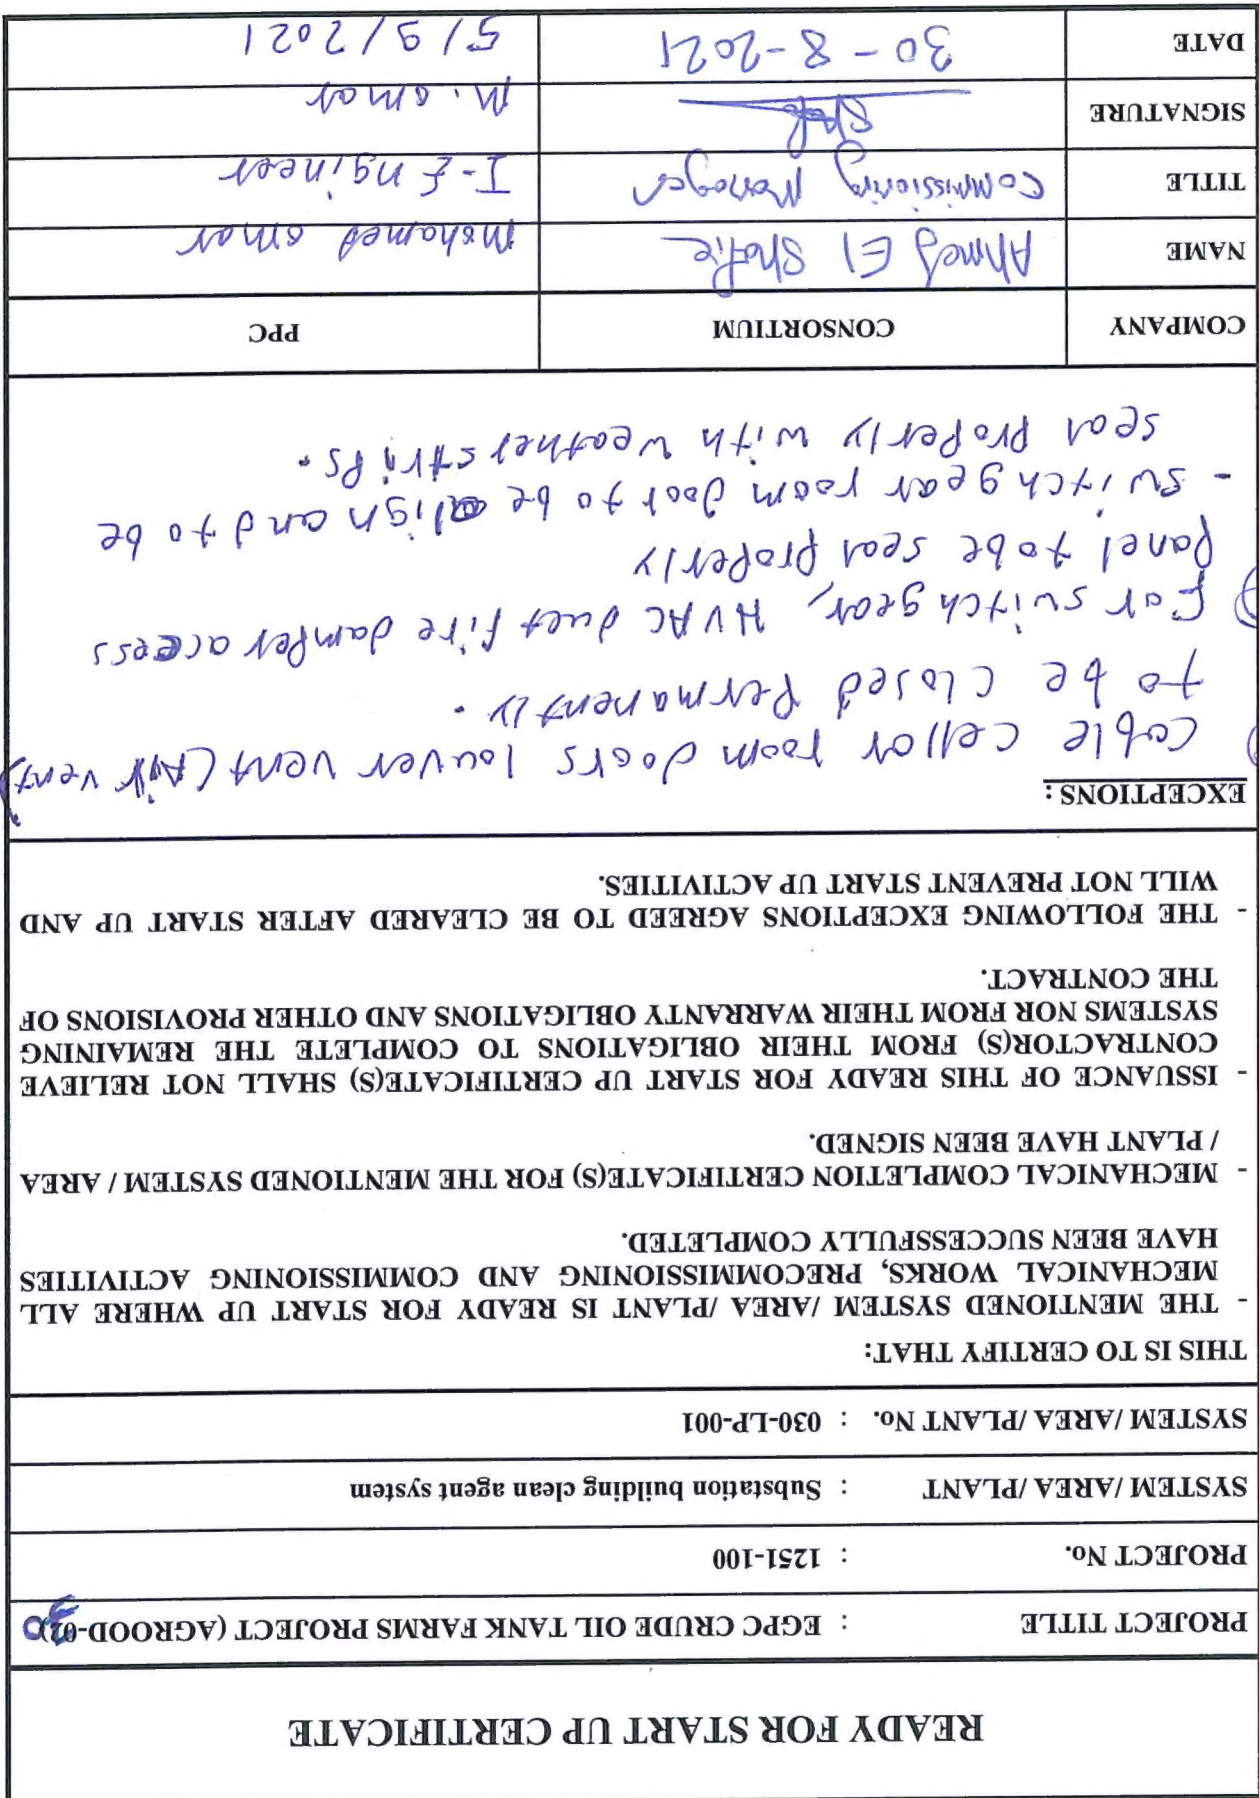 READY FOR START UP CERTIFICATE
PROJECT TITLE : EGPC CRUDE OIL TANK FARMS PROJECT (AGROOD-02)
PROJECT No. : 1251-100
SYSTEM /AREA /PLANT : Substation building clean agent system
SYSTEM /AREA /PLANT No. : 030-LP-001
THIS IS TO CERTIFY THAT:
- THE MENTIONED SYSTEM /AREA /PLANT IS READY FOR START UP WHERE ALL
MECHANICAL WORKS, PRECOMMISSIONING AND COMMISSIONING ACTIVITIES
HAVE BEEN SUCCESSFULLY COMPLETED.
- MECHANICAL COMPLETION CERTIFICATE(S) FOR THE MENTIONED SYSTEM / AREA
/ PLANT HAVE BEEN SIGNED.
- ISSUANCE OF THIS READY FOR START UP CERTIFICATE(S) SHALL NOT RELIEVE
CONTRACTOR(S) FROM THEIR OBLIGATIONS TO COMPLETE THE REMAINING
SYSTEMS NOR FROM THEIR WARRANTY OBLIGATIONS AND OTHER PROVISIONS OF
THE CONTRACT.
- THE FOLLOWING EXCEPTIONS AGREED TO BE CLEARED AFTER START UP AND
WILL NOT PREVENT START UP ACTIVITIES.
EXCEPTIONS:
Cable cellar room doors louver vent (Air vent)
to be closed permanently.
For switchgear, HVAC duct fire damper access
panel to be seal properly
- switchgear room door to be align and to be
seal properly with weatherstrips.
COMPANY CONSORTIUM PPC
NAME Ahmed El Shafie Mohamed omar
TITLE Commissioning Manager I-Engineer
SIGNATURE M. omar
DATE 30-8-2021 5/9/2021